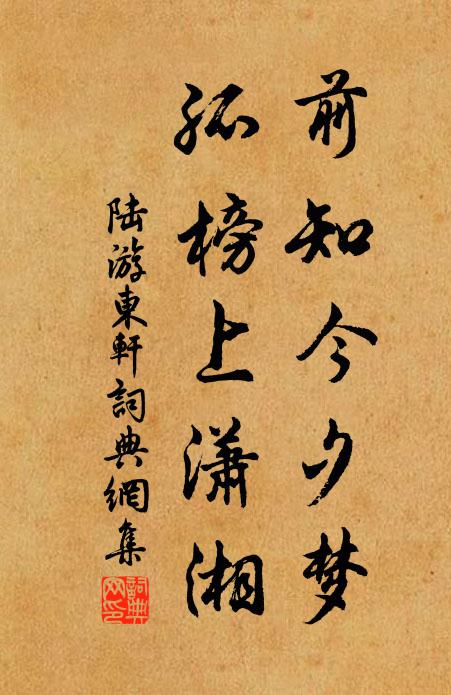 前知今夕梦
孤榜上瀟湘
陆游東軒詞典網集
詞典網印